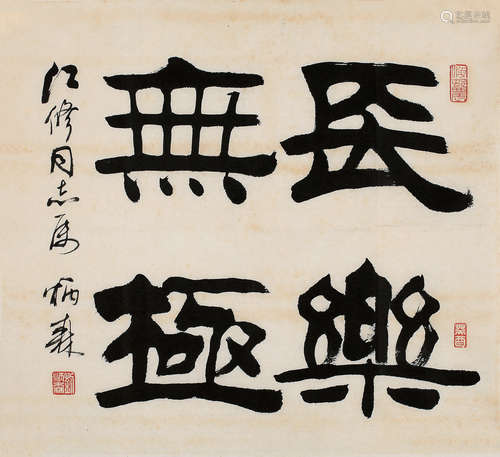 長樂
無極
江修同志属 炳森